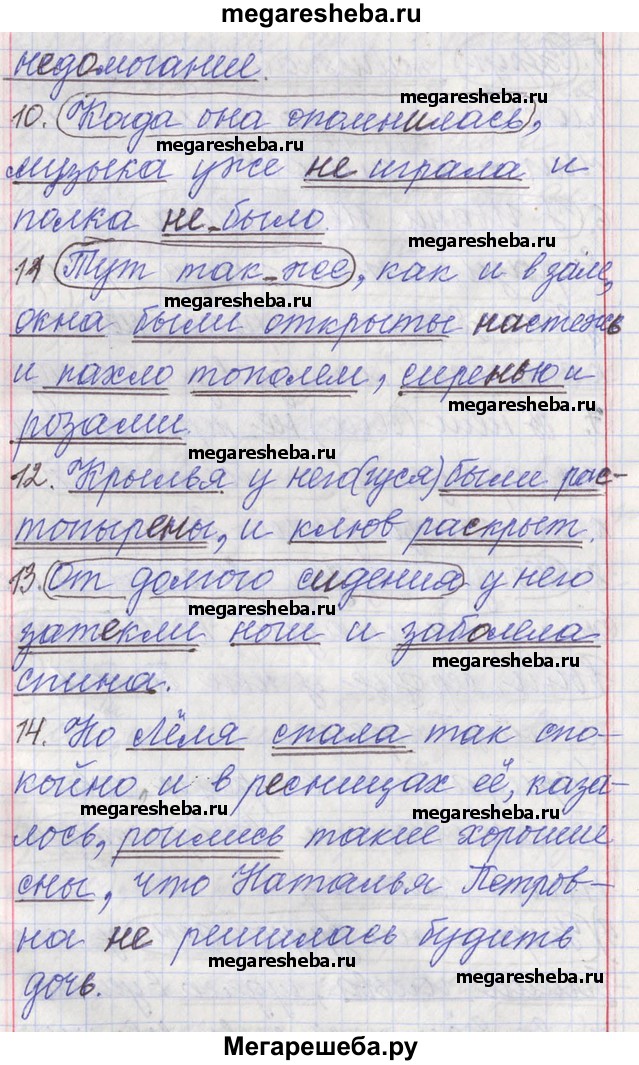 megaresheba.ru
недомогании.
10. Когда она опомнилась,
megaresheba.ru
музыка уже не играла и
полка не было.
megaresheba.ru
11 Тут так же, как и в зале,
megaresheba.ru
окна были открыты настежь
и пахло тополем, сиренью и
megaresheba.ru
розами.
megaresheba.ru
12. Крылья у него (гуся) были рас-
топырены, и клюв раскрыт.
13. От долгого сидения у него
megaresheba.ru
затекли ноги и заболела
megaresheba.ru
спина.
14. Но Лёля спала так спо-
койно, и в ресницах её, каза-
megaresheba.ru
megaresheba.ru
лось, роились такие хорошие
сны, что Наталья Петров-
на не решилась будить
megaresheba.ru
megaresheba.ru
дочь.
Мегарешеба.ру